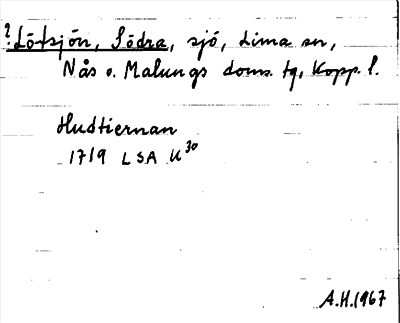 ? Lötsjön, Södra, sjö, Lima sn,
Nås o. Malungs doms. tg, Kopp. l.
Hudtiernan
1719 LSA U 30
A.H. 1967